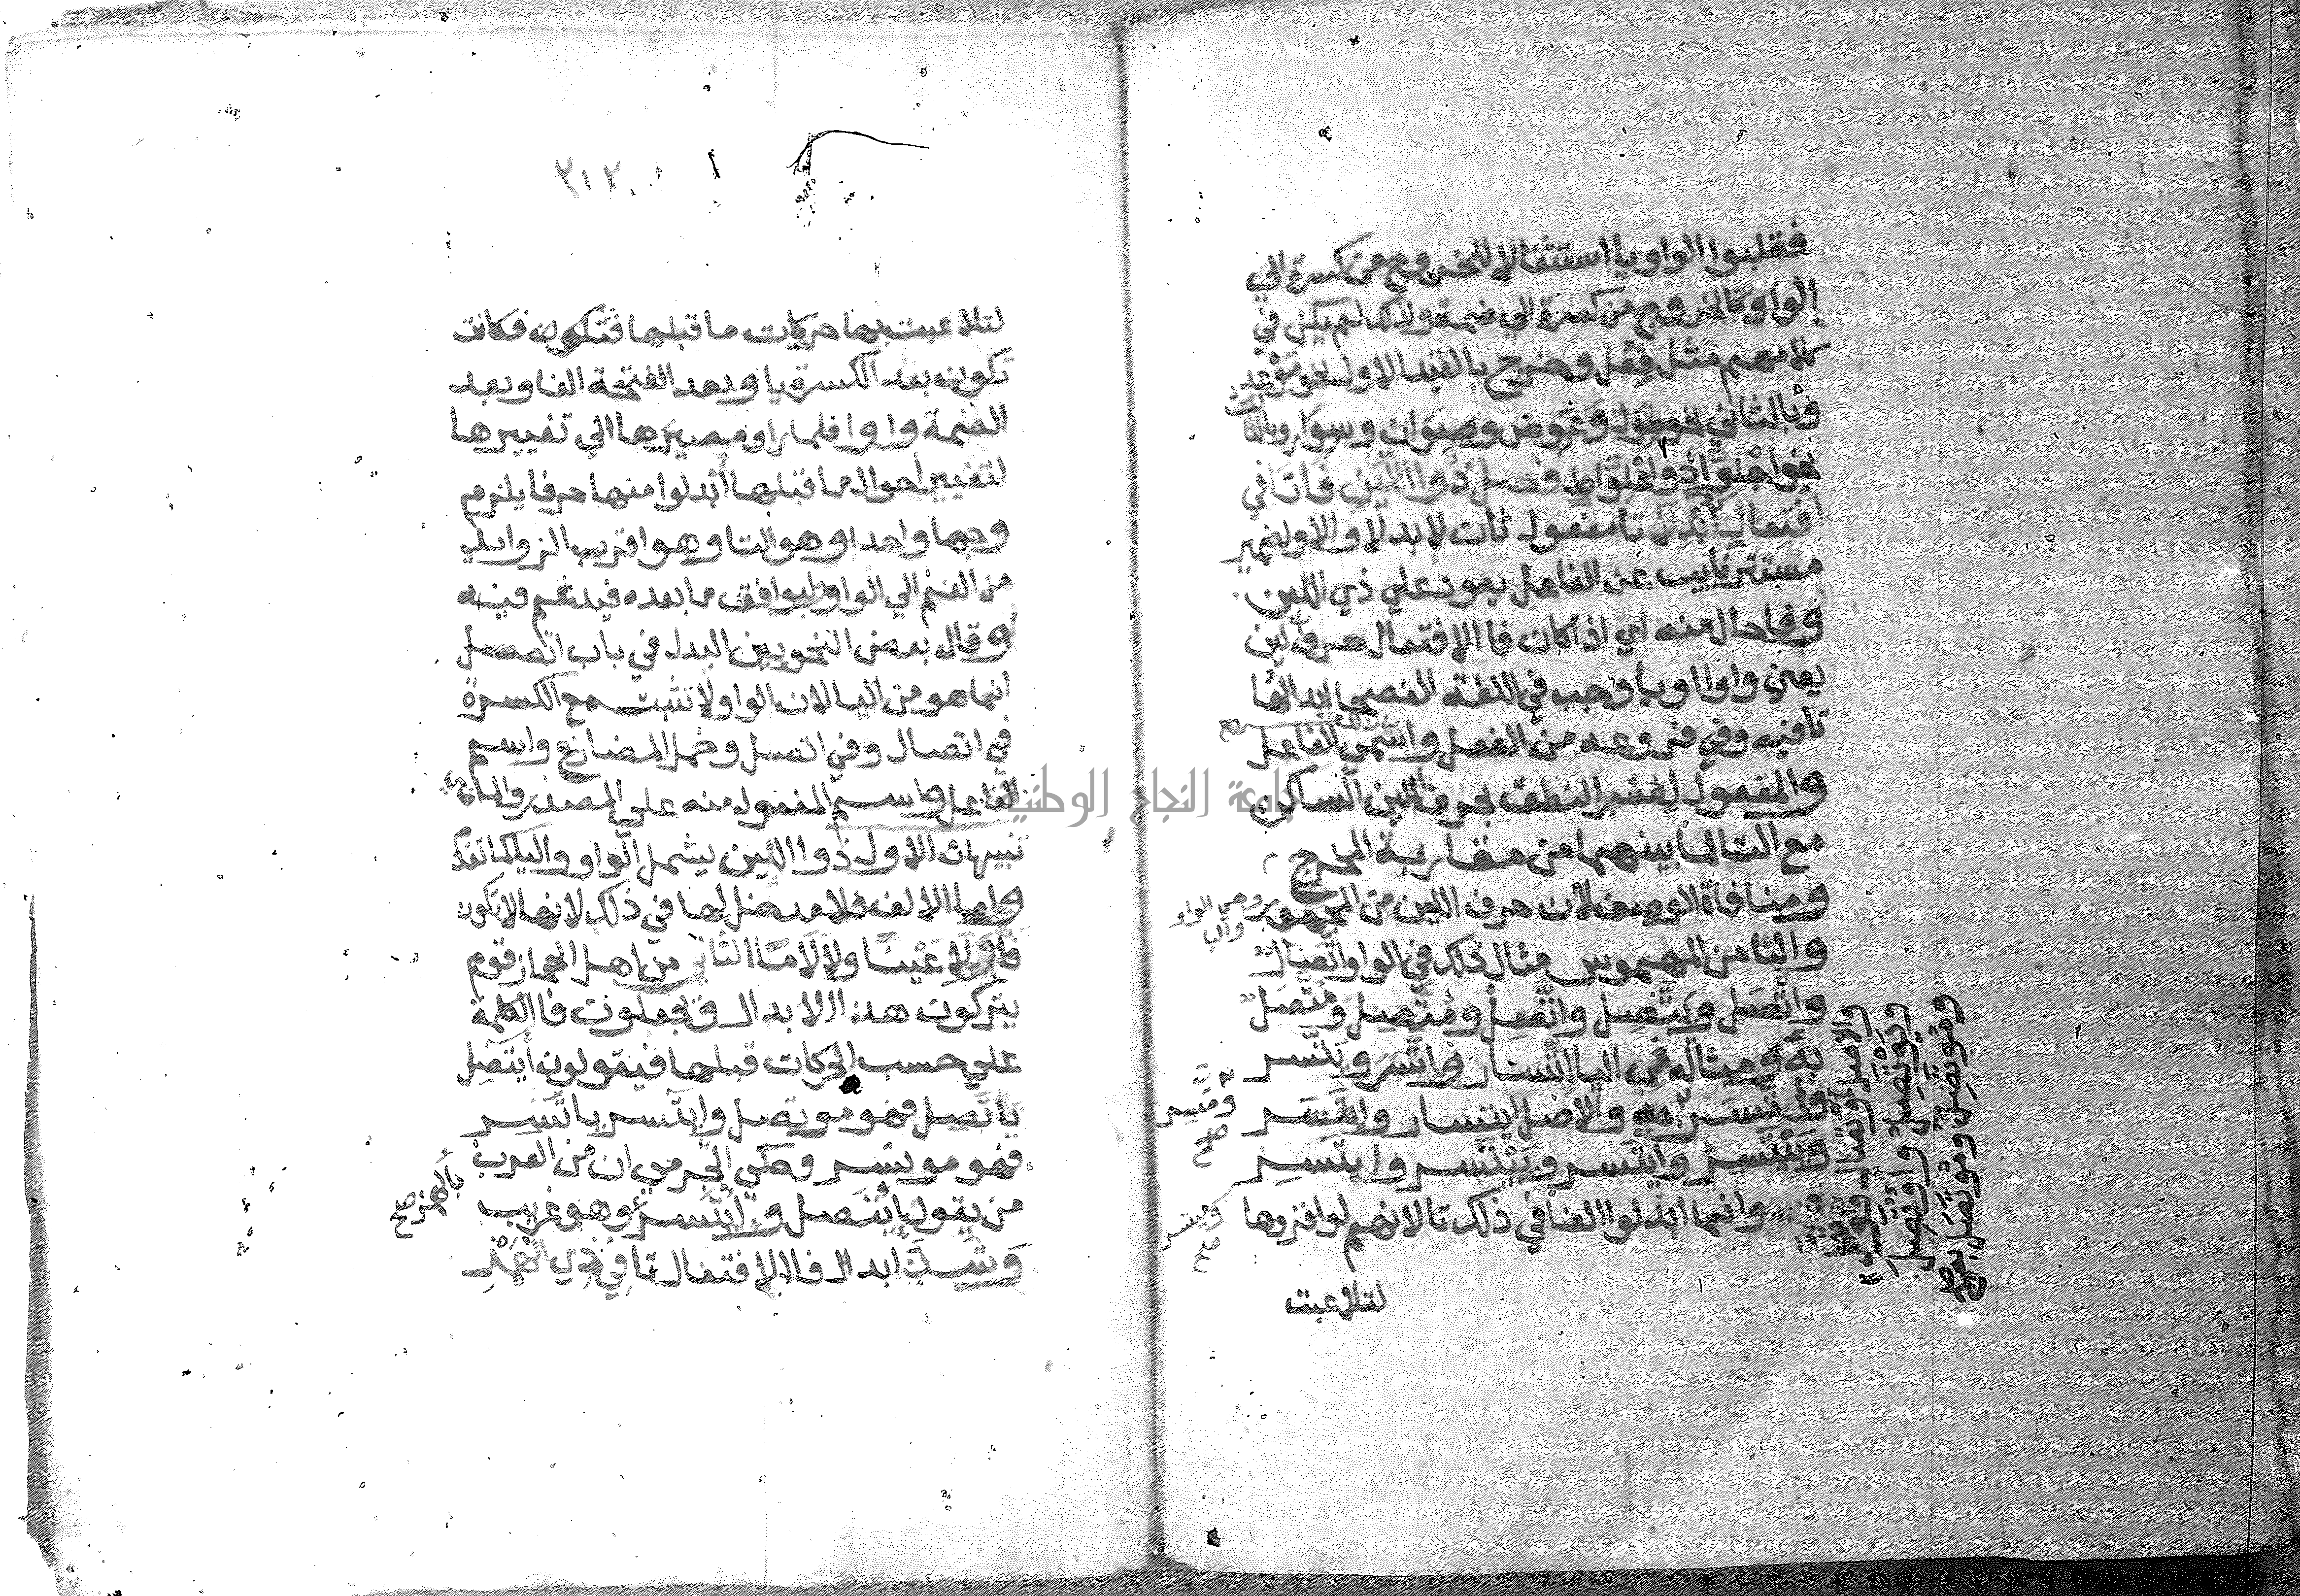 فقلبوا الواو يا استثقالا للخروج من كسرة الي
الواو كالخروج من كسرة الي ضمة ولذلك لم يكن في
كلامهم مثل فِعُل وخرج بالقيد الاول نحو موْعد
وبالثاني نحو طِوَل وَعِوَض وصِوَان وسِوَار وبالثالث
نحو اجْلِوَّاذ واعْلِوَّاط فصل ذُو اللين فا تا في
افْتِعالٍ أُبْدِلَا تا مفعول ثان لابدلا والاول ضمير
مستتر نايب عن الفاعل يعود علي ذي اللين
وفا حال منه اي اذا كان فا الافتعال حرف لين
يعني واوا او يا وجب في اللغة الفصحا ابدالها
تا فيه وفي فروعه من الفعل واسمي الفاعل
والمفعول لعسر النطق بحرف اللين الساكن
مع التا لما بينهما من مقاربة المخرج
ومنافاة الوصف لان حرف اللين من المجهور
وهي الواو
واليا
والتا من المهموس مثال ذلك في الواو اتِّصَال
واتَّصَل ويَتَّصِل واتَّصِلْ ومُتَّصِل ومُتَّصَل
به ومثاله في اليا اتِّسَار واتَّسَرَ ويَتَّسر
ومتسر
صح
واتَّسِر به والاصل ايتسار وايتَسَر
ويَيْتَسِر وايتَسر ويَيْتَسر وايتَسِر
وانما ابدلوا الفا في ذلك تا لانهم لو اقروها
صح
ويَوْتَصِل واوْتَصِل
ومُوتَصِل ومُوتَصَل به صح
لتلاعبت
٣١٢
لتلاعبت بها حركات ما قبلها فتكون فكانت
تكون بعد الكسرة يا وبعد الفتحة الفا وبعد
الضمة واوا فلما راو مصيرها الي تغييرها
لتغيير احوال ما قبلها ابدلوا منها حرفا يلزم
وجها واحدا وهو التا وهو اقرب الزوايد
من الفم الي الواو وليوافق ما بعده فيدغم فيه
وقال بعض النحويين البدل في باب اتصل
انما هو من اليا لان الواو لا تثبت مع الكسرة
في اتصال وفي اتصل وحمل المضارع واسم
الفاعل واسم المفعول منه علي المصدر والماضي
تنبيهات الاول ذو اللين يشمل الواو واليا كما تقدم
واما الالف فلا مدخل لها في ذلك لانها لا تكون
فَاً ولا عَيْنا ولا لَامًا الثاني من اهل الحجاز قوم
يتركون هذا الابدال ويجعلون فا الكلمة
علي حسب الحركات قبلها فيقولون ايتَصِل
يَاتَصِل فهو موتصل وايتسر ياتَسِر
فهو موتسر وحكي الجرمي ان من العرب
من يقول إئْتَصل وإئْتَسر وهو غريب
بالهمز صح
وشذ ابدال فا الافتعال تا في ذِي الْهَمْزِ
جامعة النجاح الوطنية